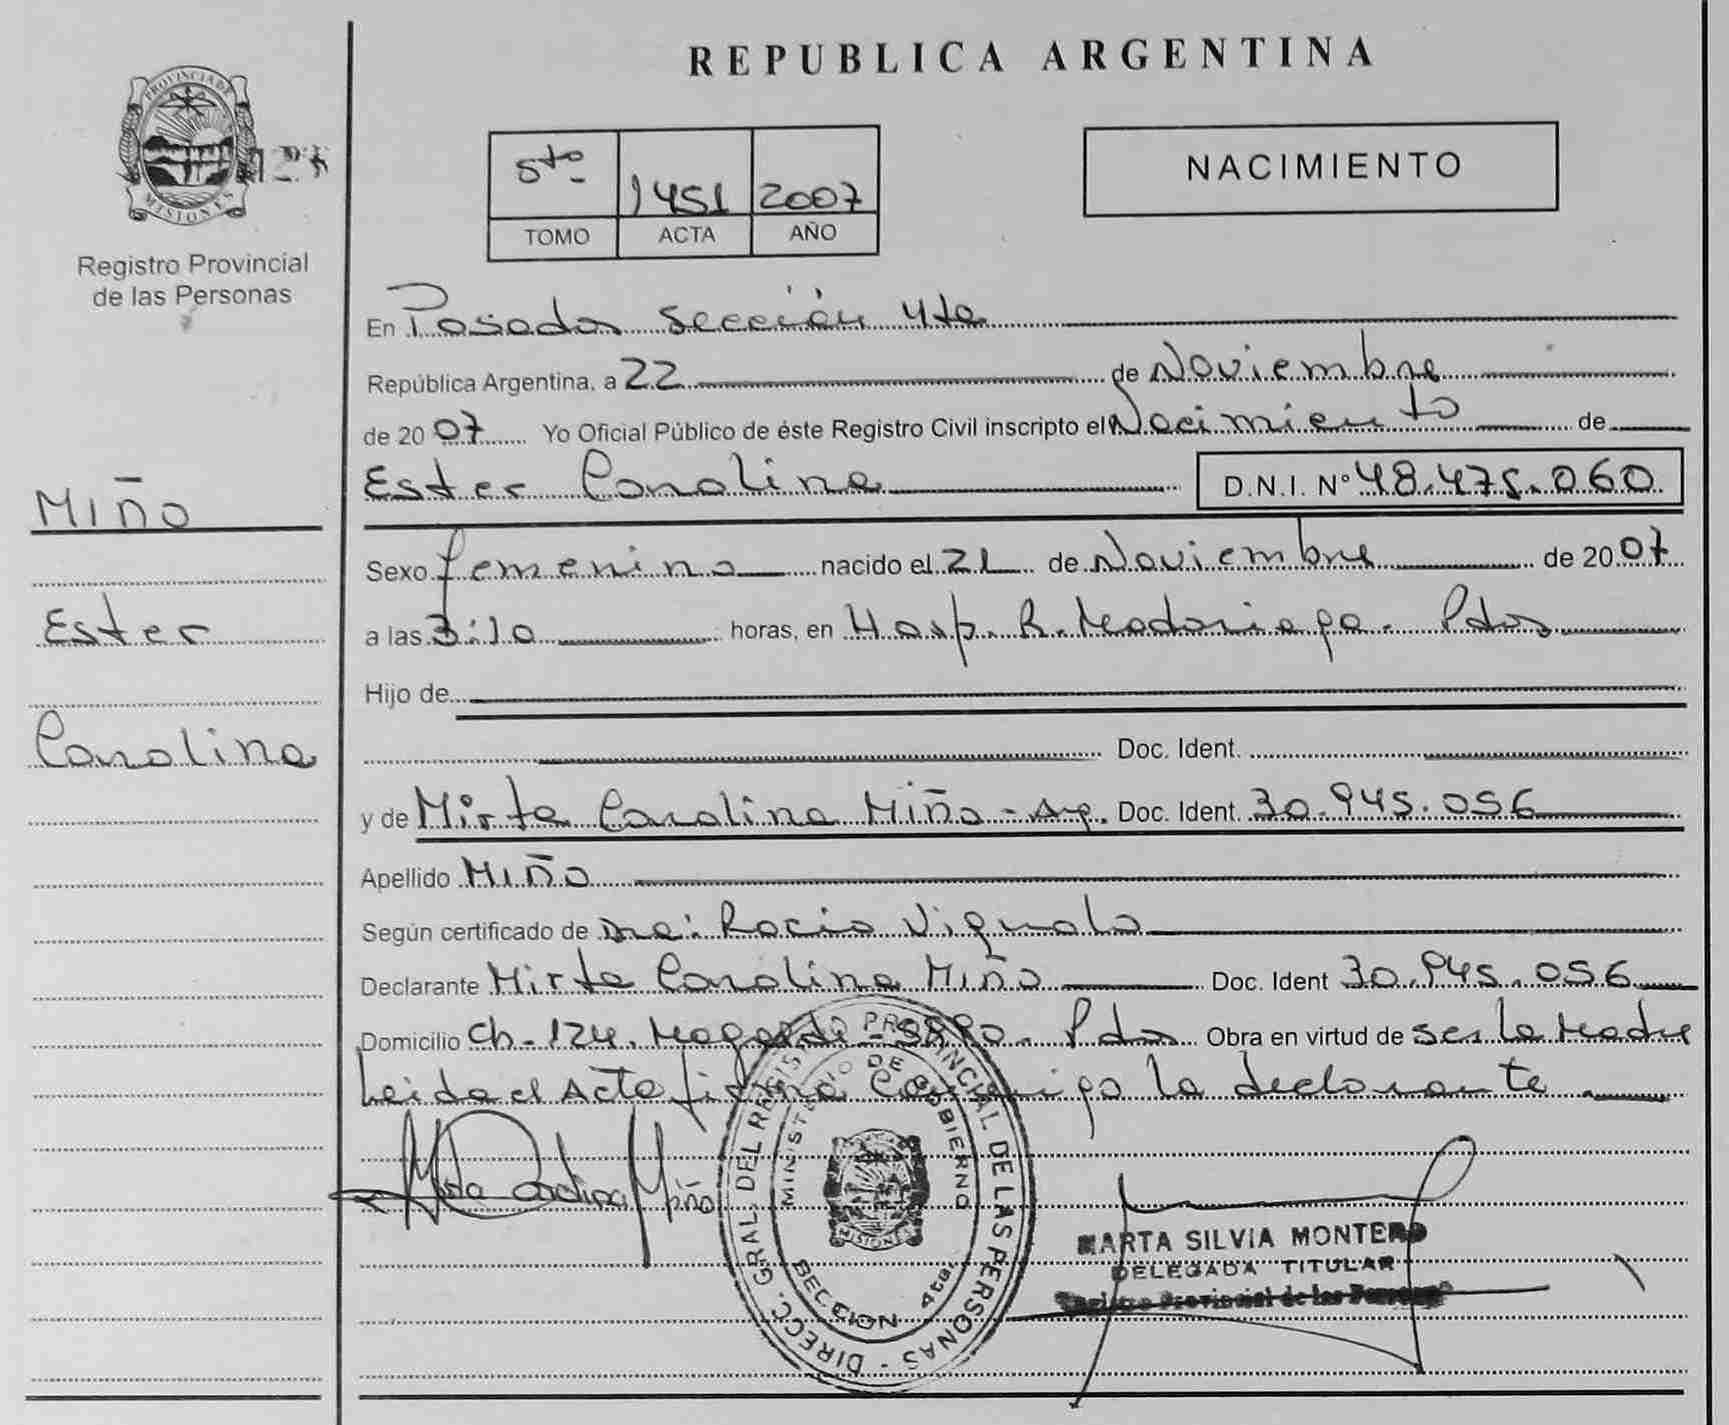 REPUBLICA ARGENTINA
PROVINCIA DE
MISIONES
Registro Provincial
de las Personas
5to
1451
2007
TOMO
ACTA
AÑO
NACIMIENTO
En Posadas Sección 4ta
República Argentina, a 22 de Noviembre
de 2007 Yo Oficial Público de éste Registro Civil inscripto el Nacimiento de
Ester Carolina D.N.I. Nº 48.475.060
MIÑO
Ester
Carolina
Sexo femenino nacido el 21 de Noviembre de 2007
a las 3:10 horas, en Hosp. R. Madariaga. Pdas
Hijo de
Doc. Ident.
y de Mirta Carolina Miño - Arg. Doc. Ident. 30.945.056
Apellido MIÑO
Según certificado de Dra: Rocio Vignolo
Declarante Mirta Carolina Miño Doc. Ident 30.945.056
Domicilio Ch. 124. Pdas Obra en virtud de ser la Madre
Leida el Acta firma Conmigo la declarante
Mirta Carolina Miño
DIRECC. GRAL. DEL REGISTRO PROVINCIAL DE LAS PERSONAS
MINISTERIO DE GOBIERNO
MISIONES
SECCION 4ta.
MARTA SILVIA MONTERO
DELEGADA TITULAR
Registro Provincial de las Personas